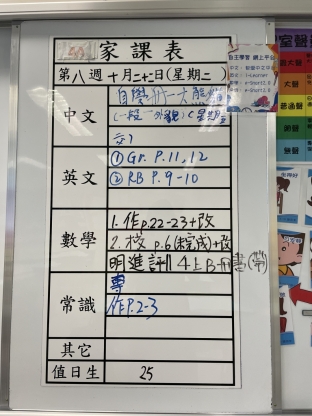 家課表
第八週十月二十二日(星期二)
中文
自學冊一大熊貓
(一段一外貌)(星期
六)
英文
① Gr. P.11, 12
② RB P.9-10
數學
1. 作 p.22-23+改
2. 校 p.6(未完成)+改
明進評 4上B冊書(帶)
常識
專
作P.2-3
其它
值日生
25
自主學習 網上平台